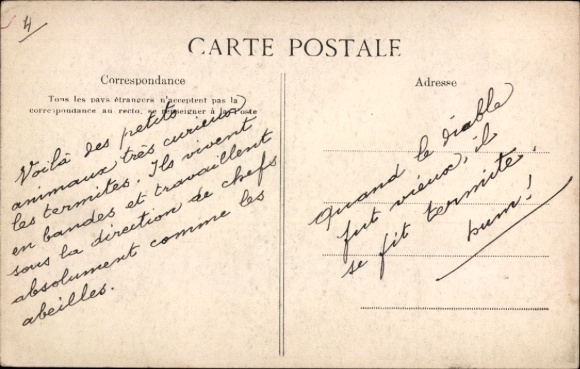 4
CARTE POSTALE
Correspondance
Tous les pays étrangers n'acceptent pas la
correspondance au recto, se renseigner à la Poste
Voilà des petits
animaux très curieux
les termites. Ils vivent
en bandes et travaillent
sous la direction de chefs
absolument comme les
abeilles.
Adresse
Quand le diable
fut vieux, il
se fit termite.
hum!